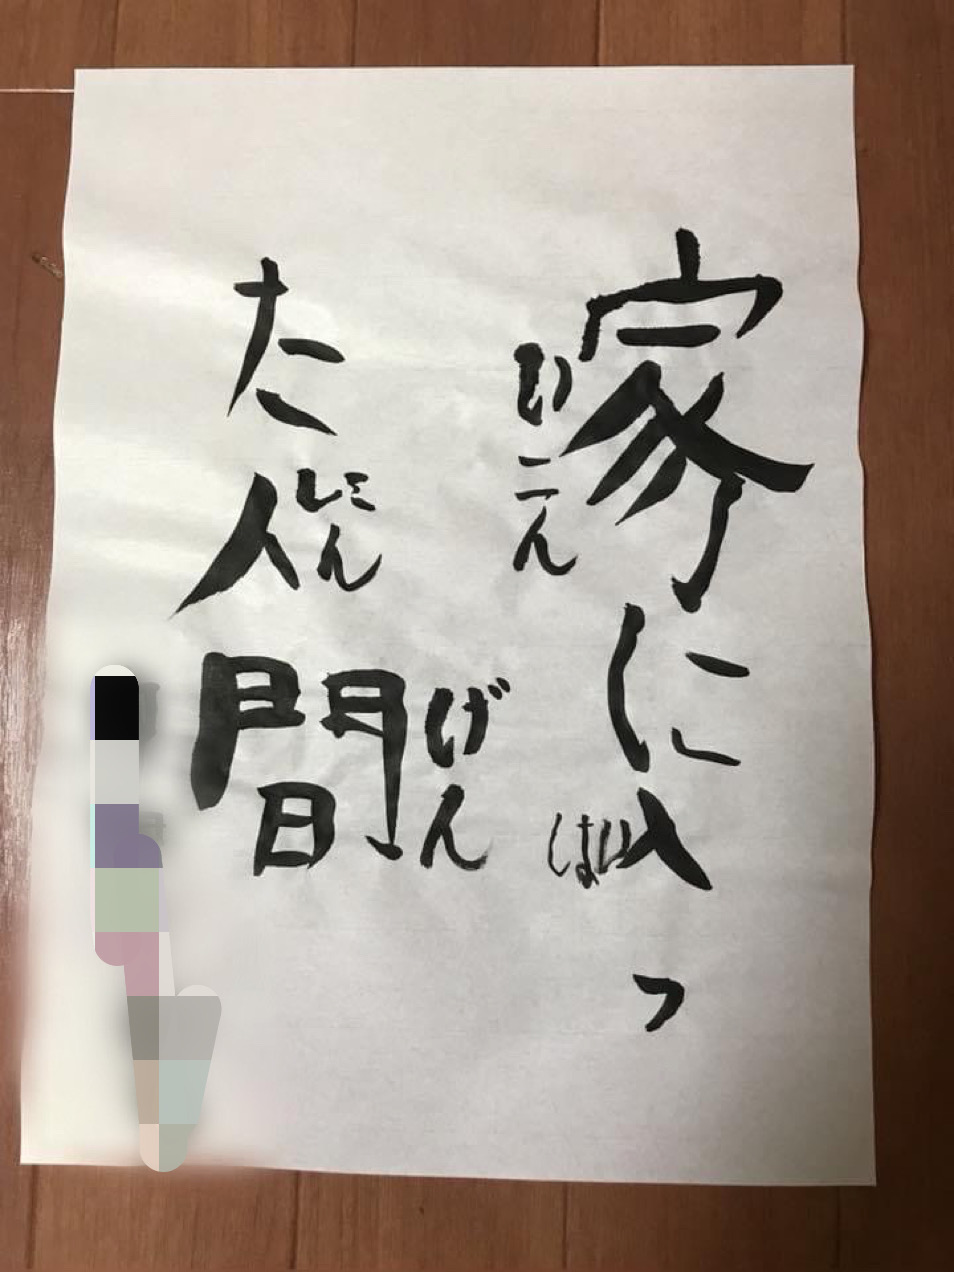 家に入っ
いえ
はい
た人間
にん
げん